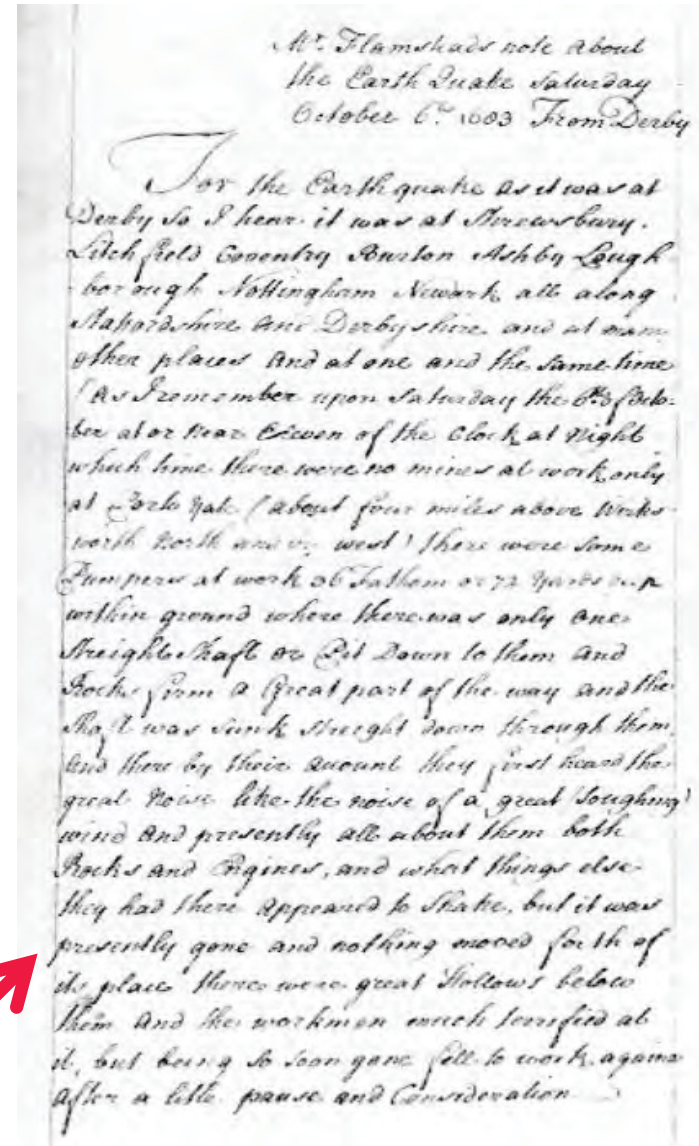 Mr. Flamsteads note about
the Earth Quake Saturday
October 6th 1683 From Derby
For the Earthquake as it was at
Derby so I hear it was at Shrewsbury.
Litchfield Coventry Burton Ashby Lough-
borough Nottingham Newark all along
Stafordshire and Derbyshire and at many
other places and at one and the same time
(As I remember upon Saturday the 6th of Octo-
ber at or near Eleven of the Clock at Night
which time there were no mines at work only
at (about four miles above Works-
worth North and west) there were some
Pumpers at work 36 Fathom or 72 yards deep
within ground where there was only one
streight shaft or Pit Down to them and
Rocks firm a Great part of the way and the
Shaft was sunk streight down through them,
and there by their acount they first heard the
great Noise like the noise of a great (Soughing)
wind and presently all about them both
Rocks and Engines, and what things else
they had there appeared to shake, but it was
presently gone and nothing moved forth of
its place there were great Hollows below
them and the workmen much terrified at
it, but being so soon gone fell to work againe
after a litle pause and Consideration